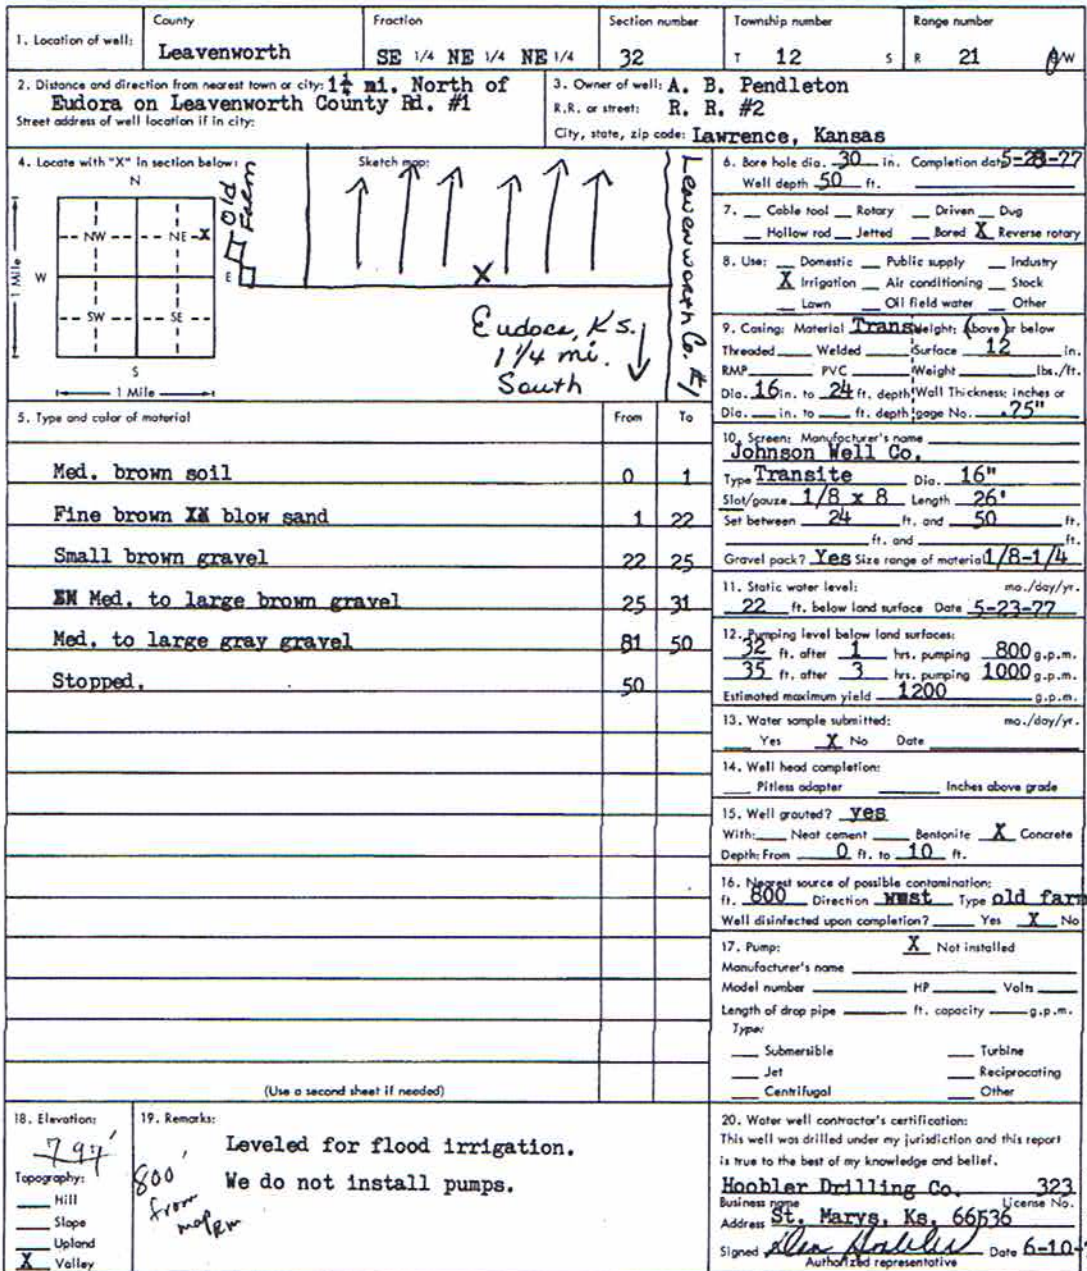 1. Location of well:
County
Leavenworth
Fraction
SE 1/4 NE 1/4 NE 1/4
Section number
32
Township number
T 12 S
Range number
R 21 E/W
2. Distance and direction from nearest town or city: 1¼ mi. North of
Eudora on Leavenworth County Rd. #1
Street address of well location if in city:
3. Owner of well: A. B. Pendleton
R.R. or street: R. R. #2
City, state, zip code: Lawrence, Kansas
4. Locate with "X" in section below:
N
NW NE X
W E
SW SE
S
1 Mile
1 Mile
Old Farm
Sketch map:
X
Eudora, Ks.
1 1/4 mi.
South
Leavenworth Co. #1
5. Type and color of material From To
Med. brown soil 0 1
Fine brown XX blow sand 1 22
Small brown gravel 22 25
XX Med. to large brown gravel 25 31
Med. to large gray gravel 81 50
Stopped. 50
(Use a second sheet if needed)
6. Bore hole dia. 30 in. Completion date 5-23-77
Well depth 50 ft.
7. __ Cable tool __ Rotary __ Driven __ Dug
__ Hollow rod __ Jetted __ Bored X Reverse rotary
8. Use: __ Domestic __ Public supply __ Industry
X Irrigation __ Air conditioning __ Stock
__ Lawn __ Oil field water __ Other
9. Casing: Material Trans Weight: Above or below
Threaded __ Welded __ Surface 12 in.
RMP __ PVC __ Weight __ lbs./ft.
Dia. 16 in. to 24 ft. depth Wall Thickness: inches or
Dia. __ in. to __ ft. depth gage No. .75"
10. Screen: Manufacturer's name
Johnson Well Co.
Type Transite Dia. 16"
Slot/gauze 1/8 x 8 Length 26'
Set between 24 ft. and 50 ft.
__ ft. and __ ft.
Gravel pack? Yes Size range of material 1/8-1/4
11. Static water level: mo./day/yr.
22 ft. below land surface Date 5-23-77
12. Pumping level below land surfaces:
32 ft. after 1 hrs. pumping 800 g.p.m.
35 ft. after 3 hrs. pumping 1000 g.p.m.
Estimated maximum yield 1200 g.p.m.
13. Water sample submitted: mo./day/yr.
__ Yes X No Date __
14. Well head completion:
__ Pitless adapter __ Inches above grade
15. Well grouted? yes
With: __ Neat cement __ Bentonite X Concrete
Depth: From 0 ft. to 10 ft.
16. Nearest source of possible contamination:
ft. 800 Direction west Type old farm
Well disinfected upon completion? __ Yes X No
17. Pump: X Not installed
Manufacturer's name __
Model number __ HP __ Volts __
Length of drop pipe __ ft. capacity __ g.p.m.
Type:
__ Submersible __ Turbine
__ Jet __ Reciprocating
__ Centrifugal __ Other
18. Elevation:
797'
Topography:
__ Hill
__ Slope
__ Upland
X Valley
19. Remarks:
Leveled for flood irrigation.
We do not install pumps.
800'
from
map
20. Water well contractor's certification:
This well was drilled under my jurisdiction and this report
is true to the best of my knowledge and belief.
Hoobler Drilling Co. 323
Business name License No.
Address St. Marys, Ks. 66536
Signed Date 6-10-
Authorized representative